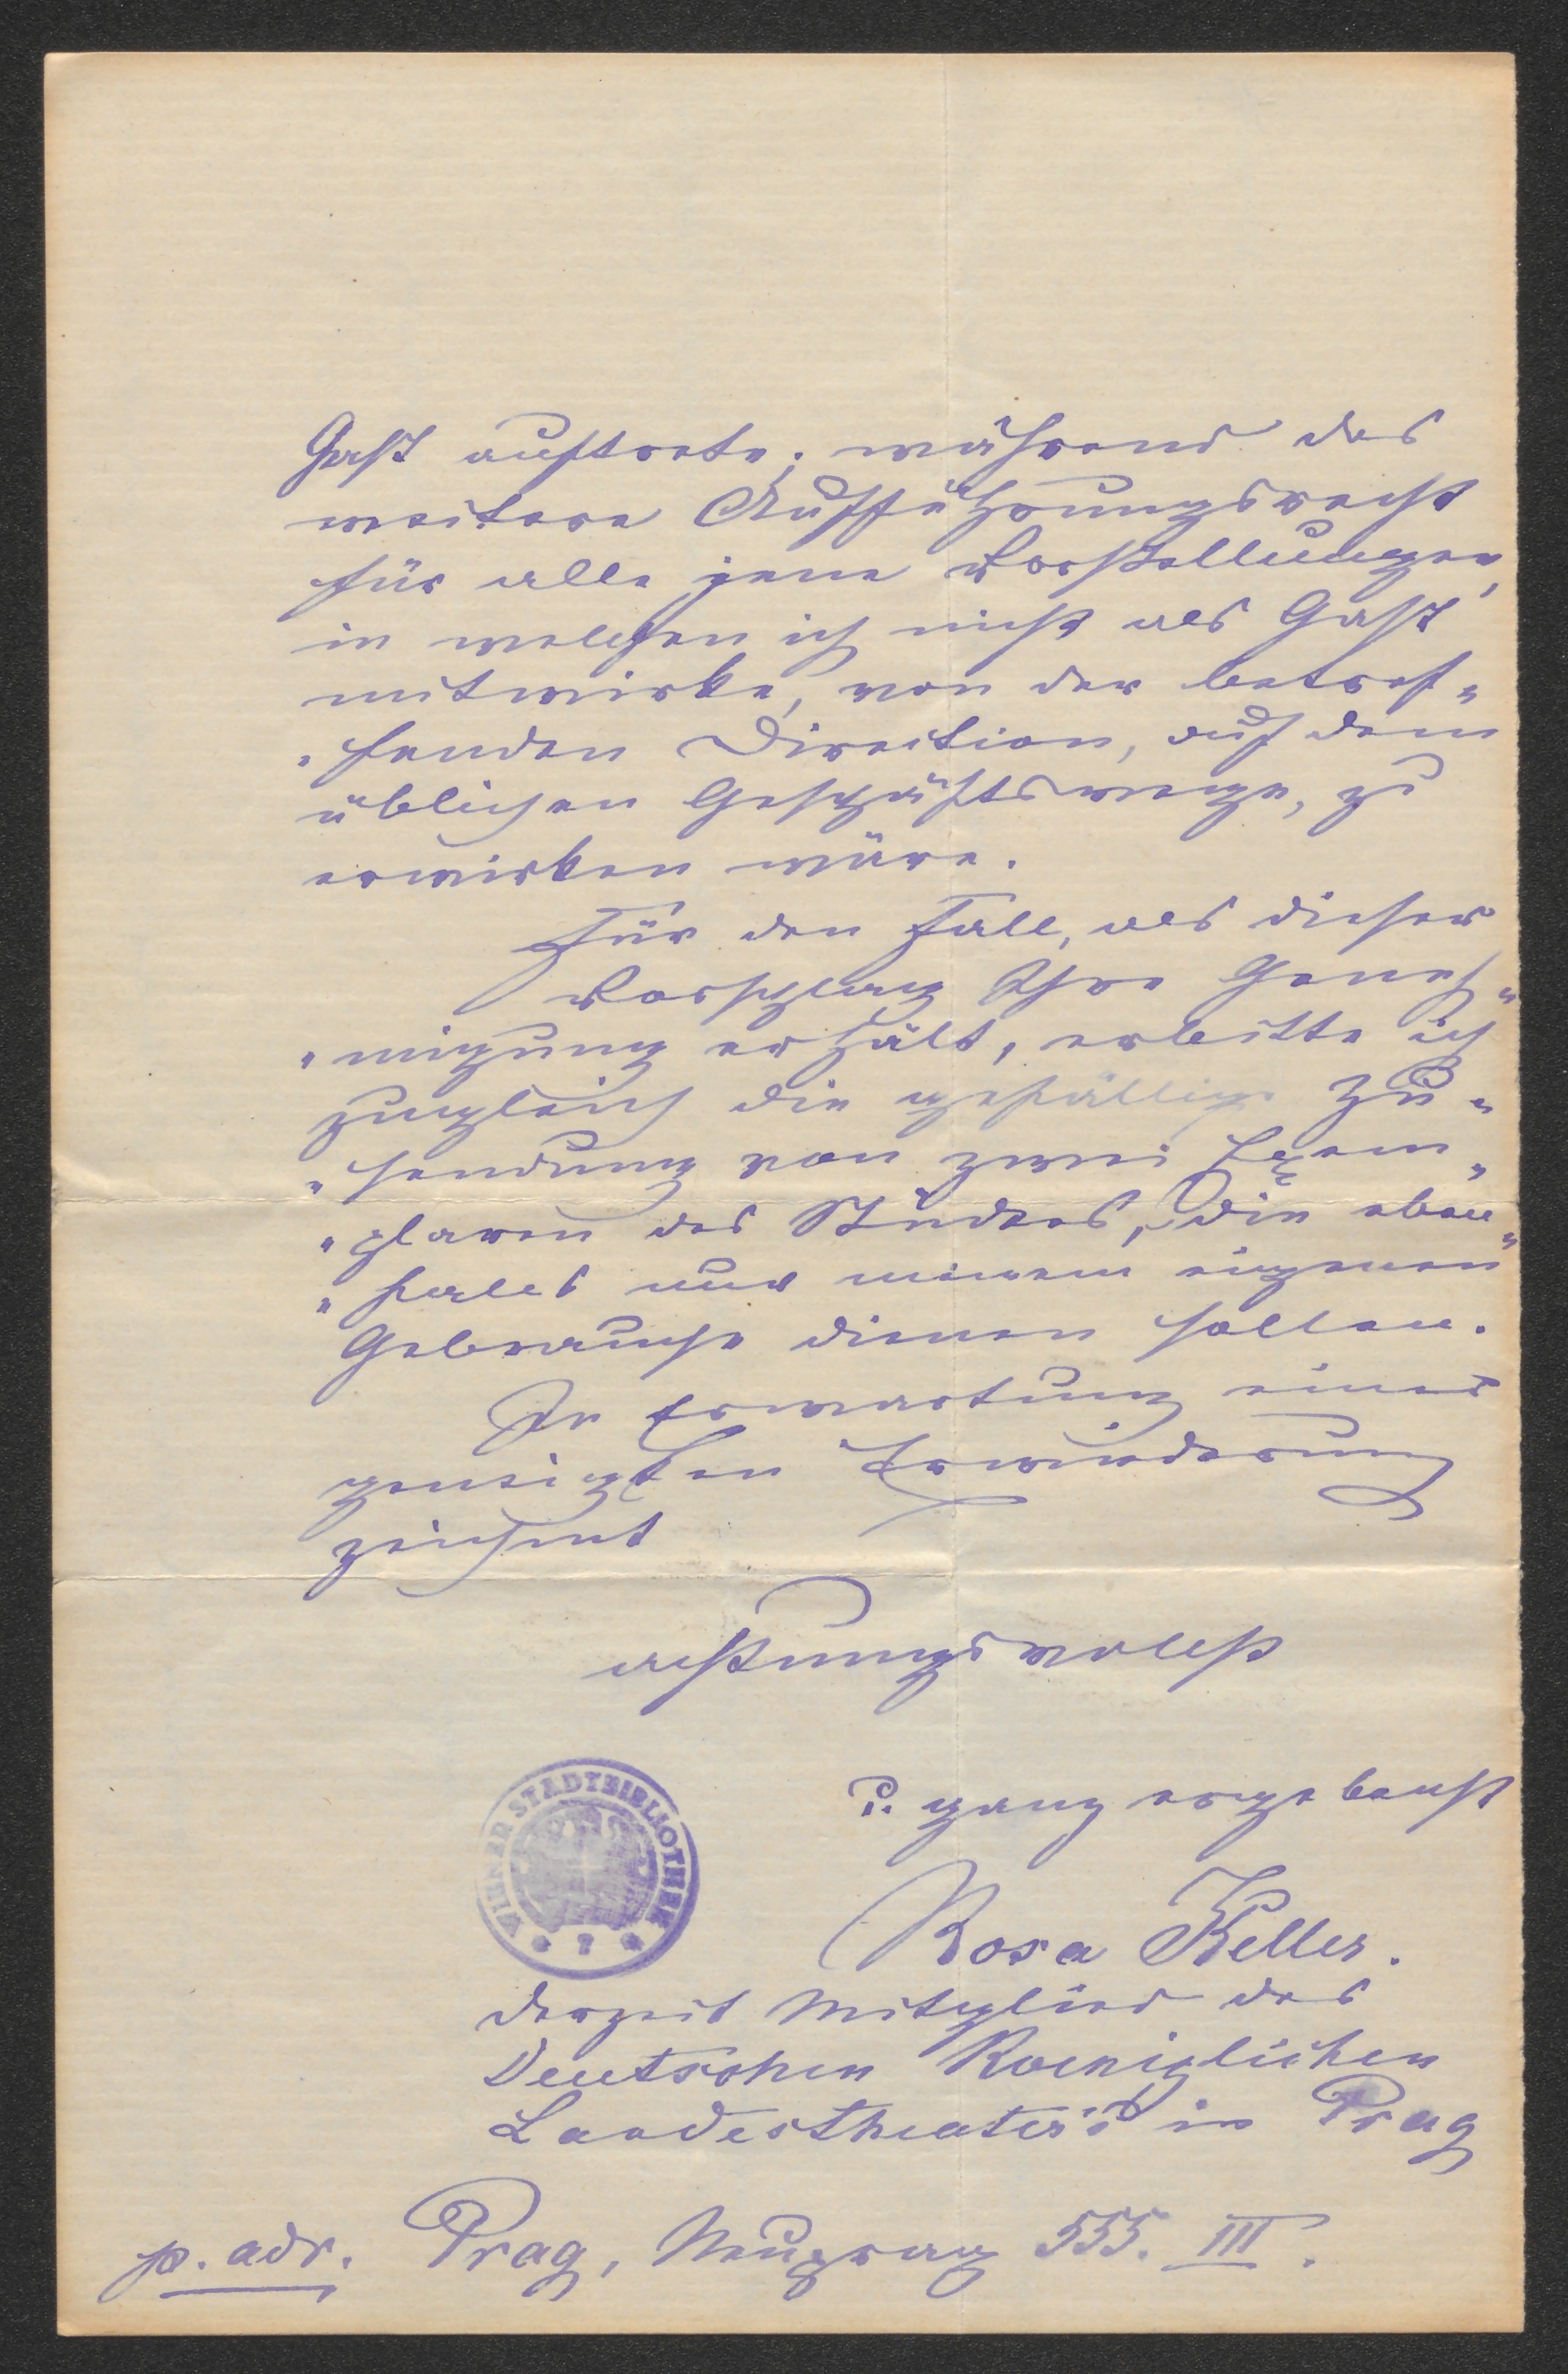 Gast auftrete; während das
weitere Aufführungsrecht
für alle jene Vorstellungen,
in welchen ich nicht als Gast
mitwirke, von der betref„
„fenden Direction, auf dem
üblichen Geschäftswege, zu
erwirken wäre.
Für den Fall, als dieser
Vorschlag Ihre Geneh„
„migung erhält, erbitte ich
zugleich die gefällige Zu„
„sendung von zwei Exem„
„plaren des Stückes, die eben„
„falls nur meinem eigenen
Gebrauche dienen sollen.
In Erwartung einer
geneigten Erwiederung
zeichnet
achtungsvollst
u. ganz ergebenst
WIENER STADTBIBLIOTHEK
* 7 *
Rosa Keller.
derzeit Mitglied des
Deutschen Koeniglichen
Landestheater's in Prag
p. adr. Prag, Neuprag 555. III.